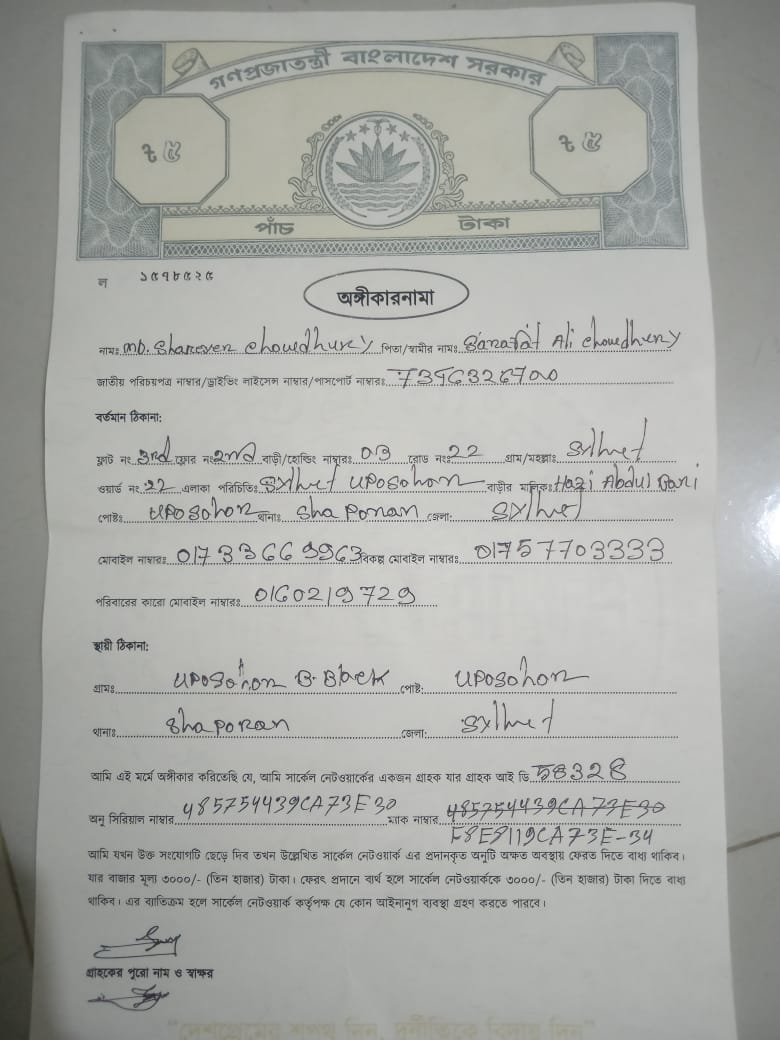 গণপ্রজাতন্ত্রী বাংলাদেশ সরকার
৳ ৫ ৳ ৫
পাঁচ টাকা
ল ১৫৭৮৫২৫
অঙ্গীকারনামা
নামঃ MD. Sharever Chowdhury পিতা/স্বামীর নামঃ Ali Chowdhury
জাতীয় পরিচয়পত্র নাম্বার/ড্রাইভিং লাইসেন্স নাম্বার/পাসপোর্ট নাম্বারঃ
বর্তমান ঠিকানা:
ফ্লাট নং 3rd ফ্লোর নং 2nd বাড়ী/হোল্ডিং নাম্বারঃ 03 রোড নংঃ 22 গ্রাম/মহল্লাঃ Sylhet
ওয়ার্ড নং 22 এলাকা পরিচিতিঃ Sylhet Uposohon বাড়ীর মালিকঃ Hazi Abdul Gani
পোষ্টঃ Uposohon থানাঃ Sha Poran জেলা: Sylhet
মোবাইল নাম্বারঃ 01733669963 বিকল্প মোবাইল নাম্বারঃ 01757703333
পরিবারের কারো মোবাইল নাম্বারঃ 0160219729
স্থায়ী ঠিকানা:
গ্রামঃ Uposohon B-Block পোষ্ট: Uposohon
থানাঃ Sha Poran জেলা: Sylhet
আমি এই মর্মে অঙ্গীকার করিতেছি যে, আমি সার্কেল নেটওয়ার্কের একজন গ্রাহক যার গ্রাহক আই ডি. 58328
অনু সিরিয়াল নাম্বার 485754439CA73E30 ম্যাক নাম্বার 485754439CA73E30
E8E8119CA73E-34
আমি যখন উক্ত সংযোগটি ছেড়ে দিব তখন উল্লেখিত সার্কেল নেটওয়ার্ক এর প্রদানকৃত অনুটি অক্ষত অবস্থায় ফেরত দিতে বাধ্য থাকিব।
যার বাজার মূল্য ৩০০০/- (তিন হাজার) টাকা। ফেরৎ প্রদানে ব্যর্থ হলে সার্কেল নেটওয়ার্ককে ৩০০০/- (তিন হাজার) টাকা দিতে বাধ্য
থাকিব। এর ব্যতিক্রম হলে সার্কেল নেটওয়ার্ক কর্তৃপক্ষ যে কোন আইনানুগ ব্যবস্থা গ্রহণ করতে পারবে।
গ্রাহকের পুরো নাম ও স্বাক্ষর
"দেশপ্রেমের শপথ নিন, দুর্নীতিকে বিদায় দিন"